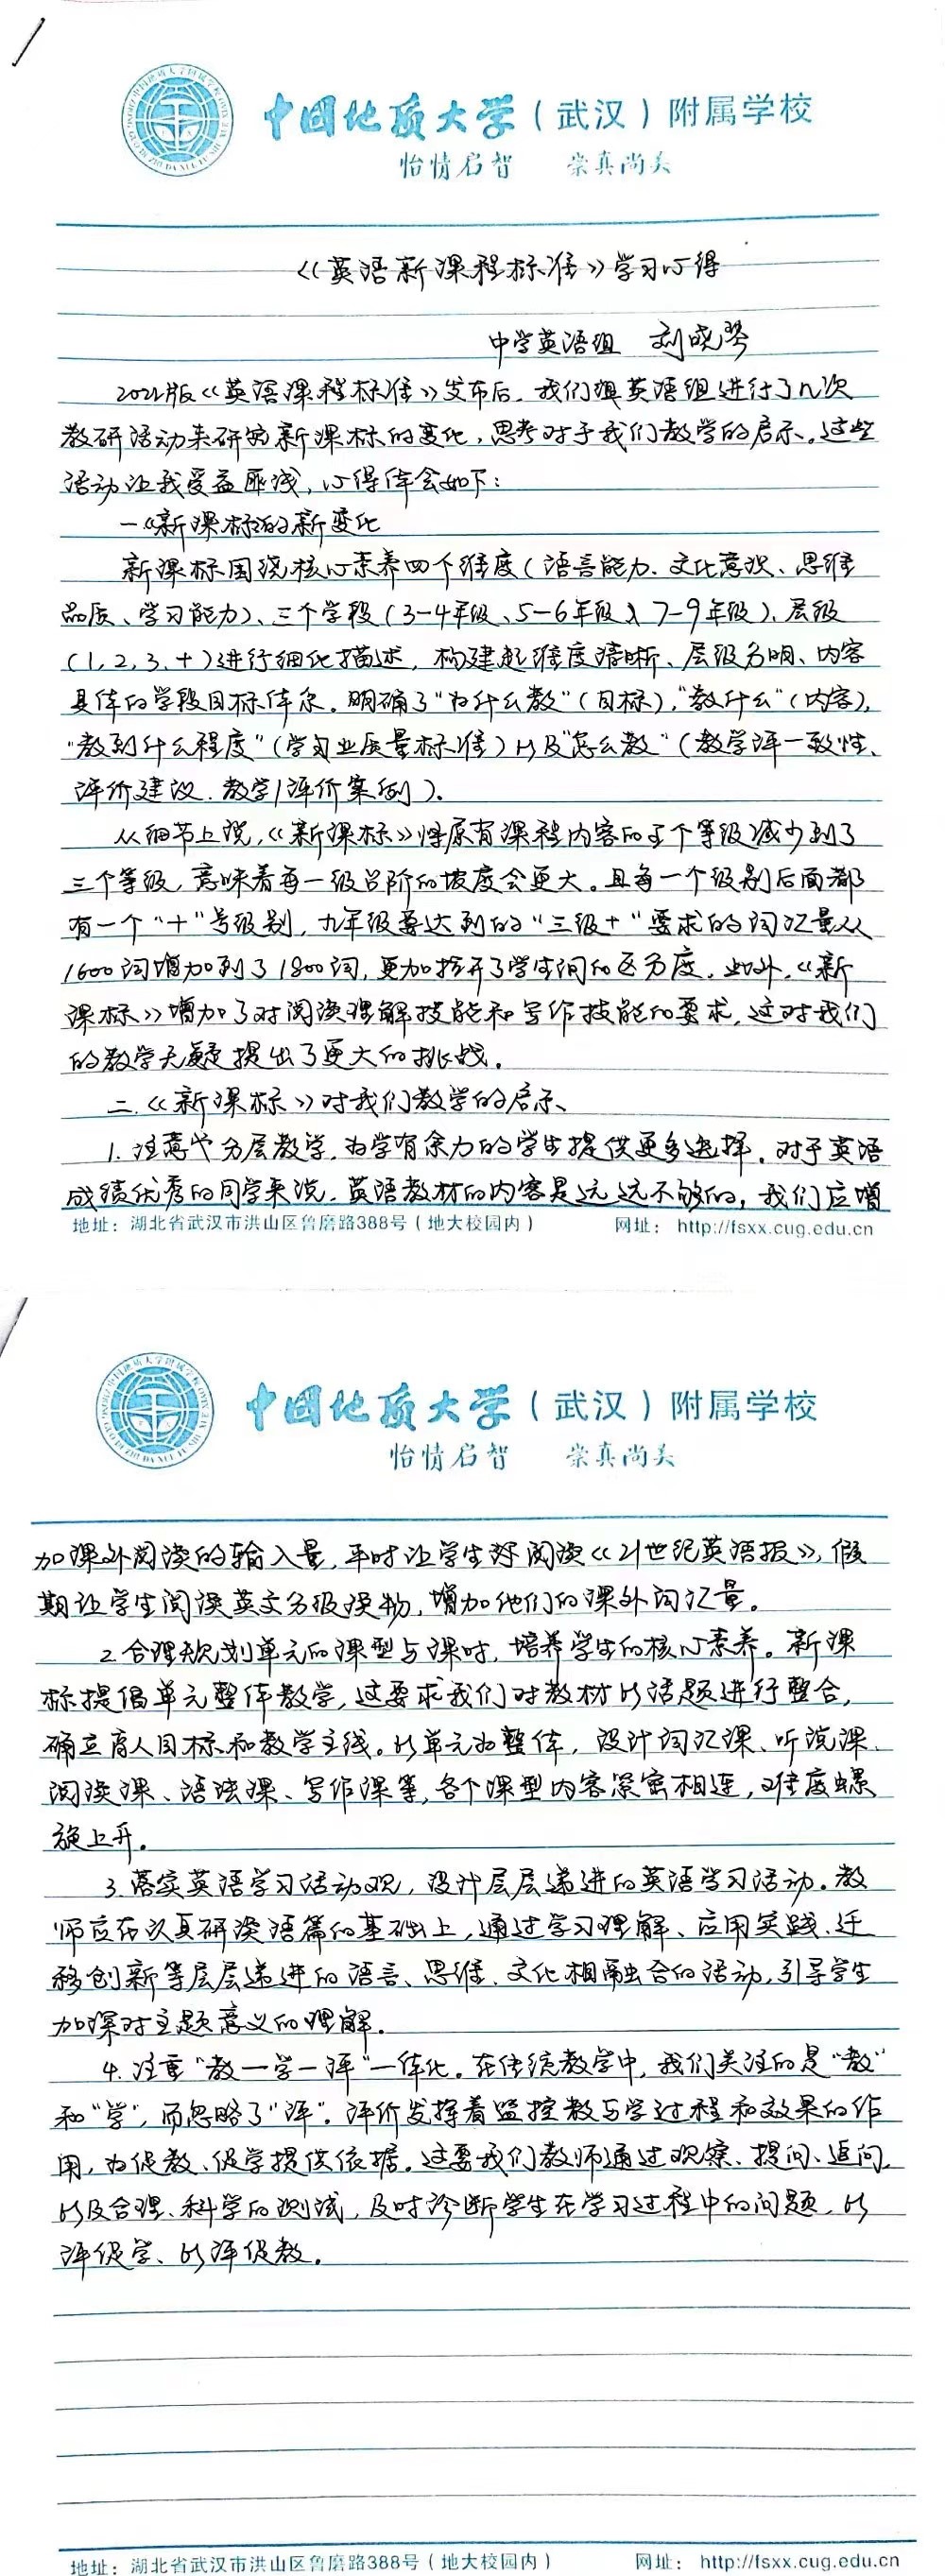 中国地质大学（武汉）附属学校
怡情启智 崇真尚美
《英语新课程标准》学习心得
中学英语组 刘晓琴
2022版《英语课程标准》发布后，我们组英语组进行了几次
教研活动来研究新课标的变化，思考对于我们教学的启示。这些
活动让我受益匪浅，心得体会如下：
一《新课标》的新变化
新课标围绕核心素养四个维度（语言能力、文化意识、思维
品质、学习能力）、三个学段（3-4年级、5-6年级、7-9年级）、层级
（1，2，3，+）进行细化描述，构建起维度清晰、层级分明、内容
具体的学段目标体系。明确了“为什么教”（目标），“教什么”（内容），
“教到什么程度”（学业质量标准）以及“怎么教”（教学评一致性、
评价建议、教学/评价案例）。
从细节上说，《新课标》将原有课程内容的五个等级减少到了
三个等级，意味着每一级台阶的坡度会更大。且每一个级别后面都
有一个“+”号级别，九年级要达到的“三级+”要求的词汇量从
1600词增加到了1800词，更加拉开了学生间的区分度。此外，《新
课标》增加了对阅读理解技能和写作技能的要求，这对我们
的教学无疑提出了更大的挑战。
二、《新课标》对我们教学的启示、
1. 注意分层教学，为学有余力的学生提供更多选择。对于英语
成绩优秀的同学来说，英语教材的内容是远远不够的，我们应增
地址：湖北省武汉市洪山区鲁磨路388号（地大校园内） 网址： http://fsxx.cug.edu.cn
中国地质大学（武汉）附属学校
怡情启智 崇真尚美
加课外阅读的输入量，平时让学生好阅读《21世纪英语报》，假
期让学生阅读英文分级读物，增加他们的课外词汇量。
2. 合理规划单元的课型与课时，培养学生的核心素养。新课
标提倡单元整体教学，这要求我们对教材以话题进行整合，
确立育人目标和教学主线。以单元为整体，设计词汇课、听说课、
阅读课、语法课、写作课等，各个课型内容紧密相连，难度螺
旋上升。
3. 落实英语学习活动观，设计层层递进的英语学习活动。教
师应在认真研读语篇的基础上，通过学习理解、应用实践、迁
移创新等层层递进的语言、思维、文化相融合的活动，引导学生
加深对主题意义的理解。
4. 注重“教一学一评”一体化。在传统教学中，我们关注的是“教”
和“学”，而忽略了“评”。评价发挥着监控教与学过程和效果的作
用，为促教、促学提供依据。这要我们教师通过观察、提问、追问，
以及合理、科学的测试，及时诊断学生在学习过程中的问题，以
评促学、以评促教。
地址：湖北省武汉市洪山区鲁磨路388号（地大校园内） 网址： http://fsxx.cug.edu.cn